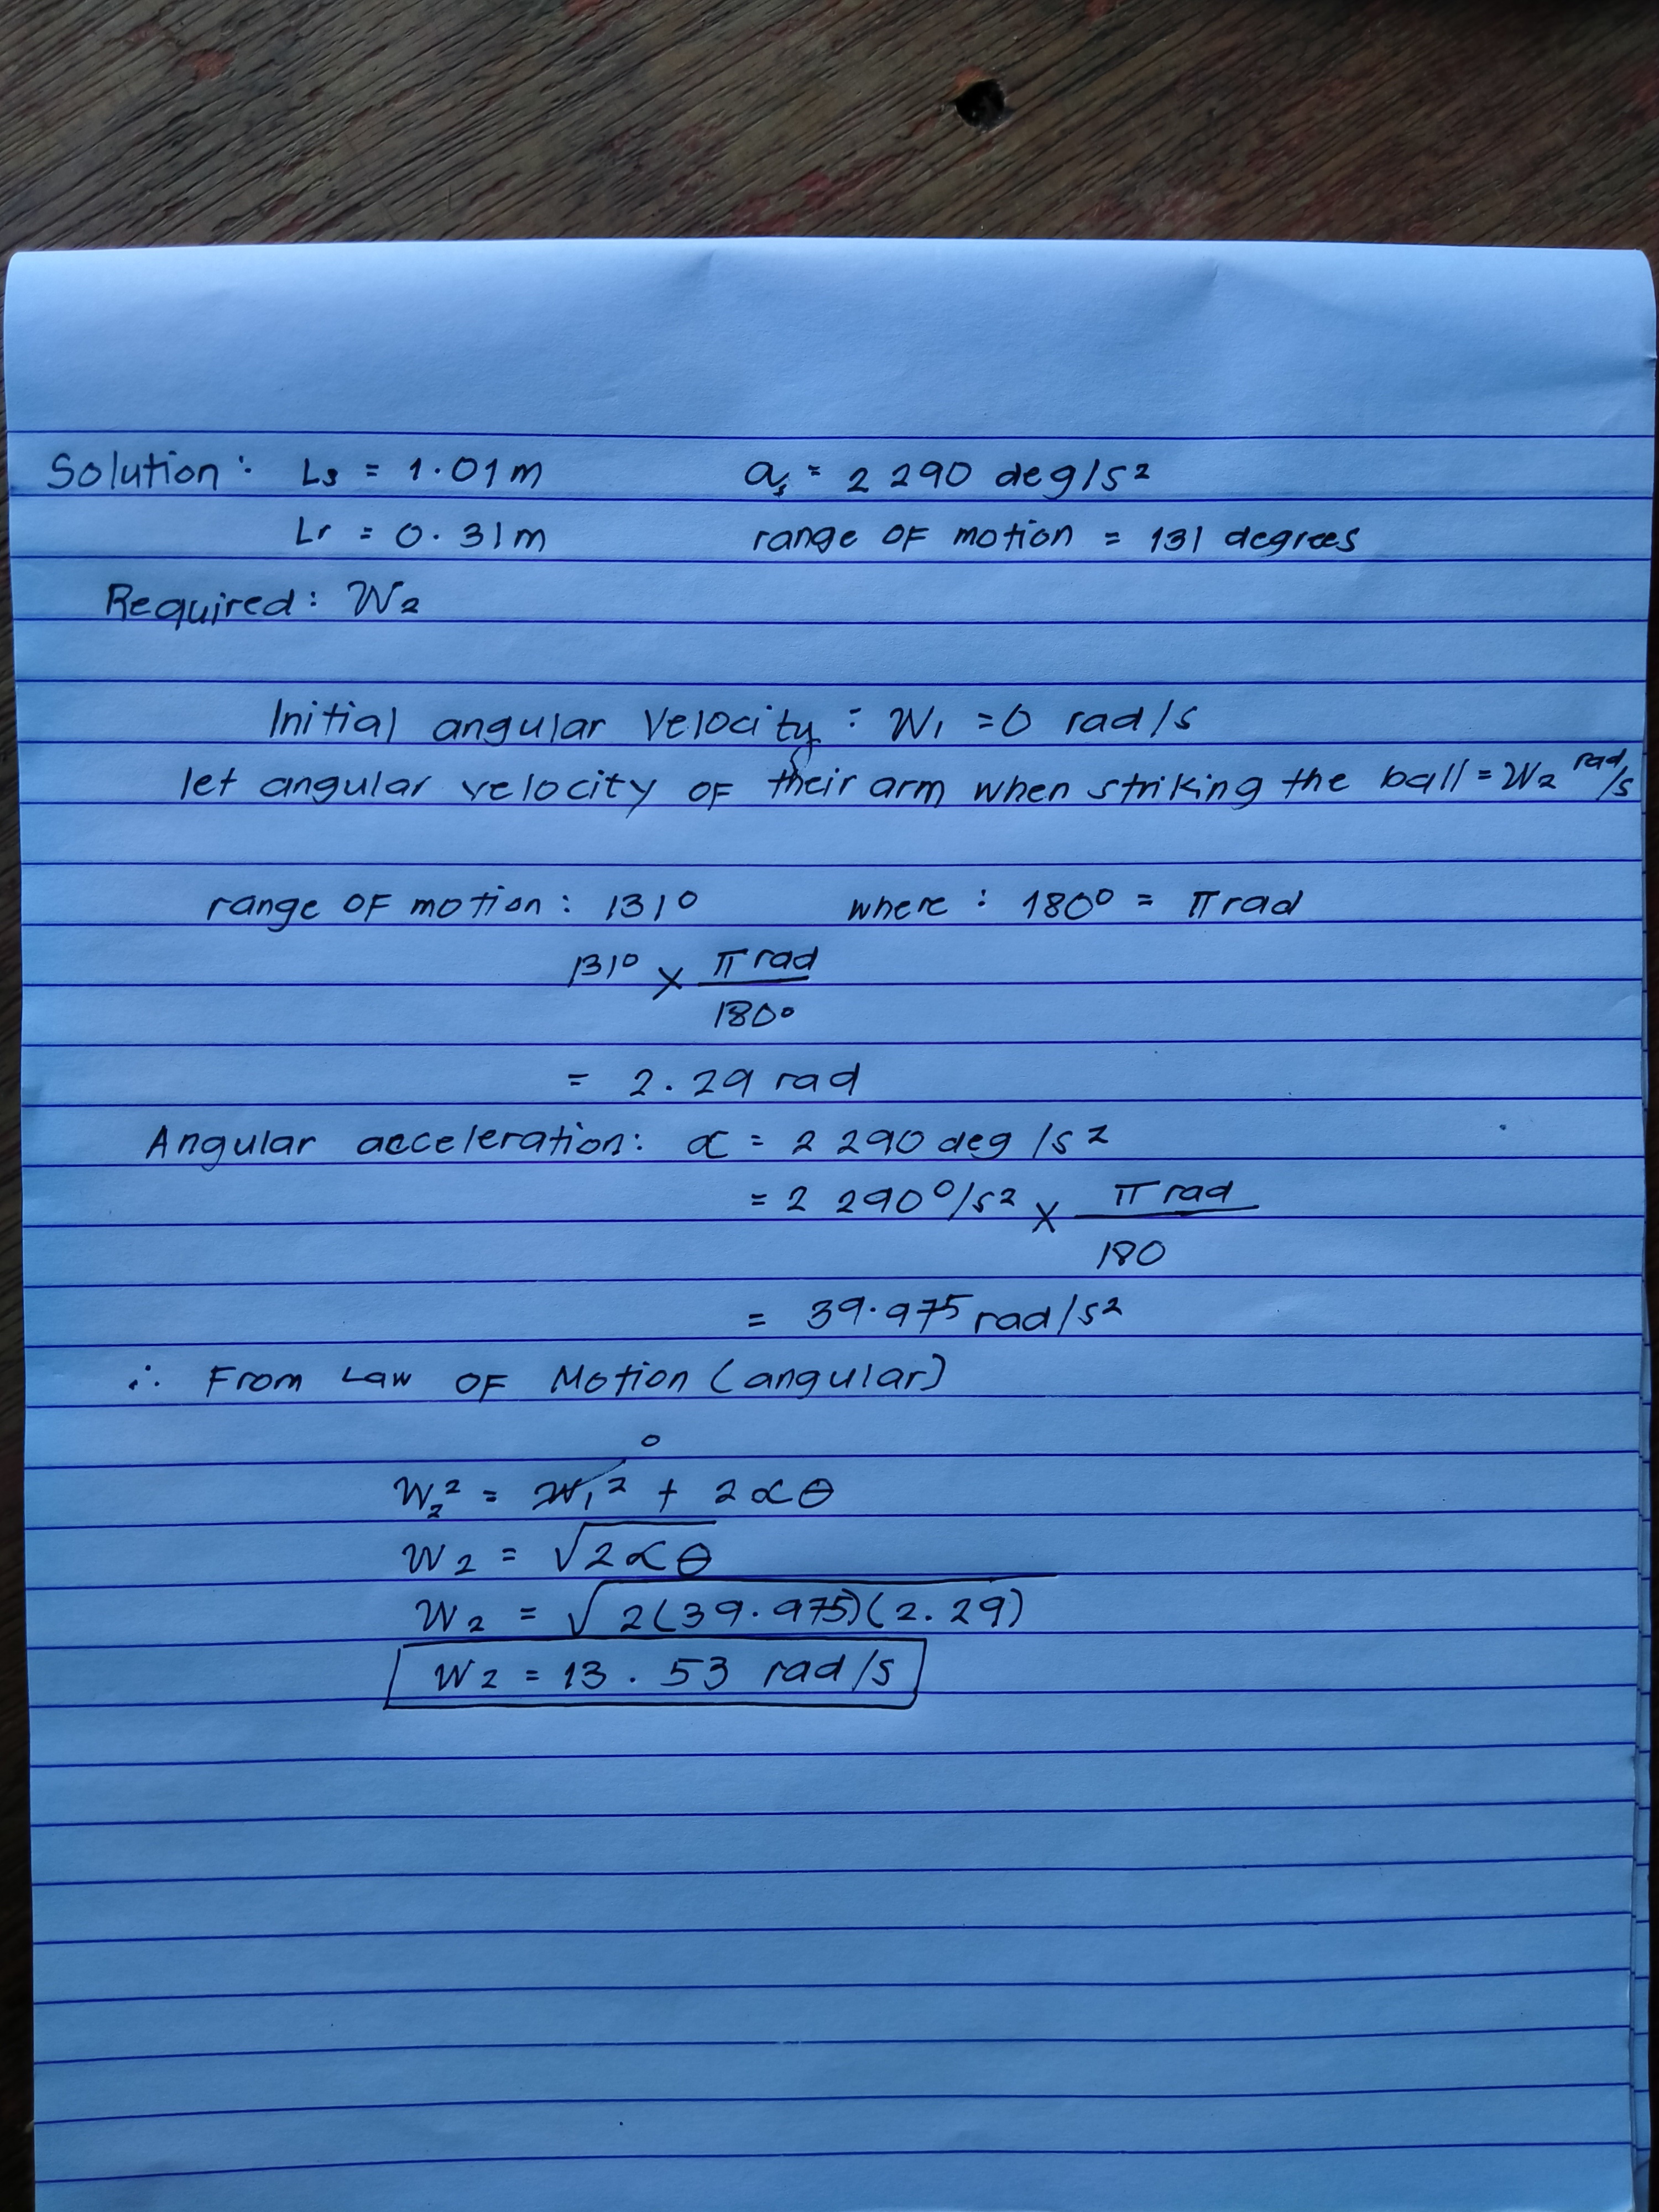 Solution: Ls = 1.01m as = 2 290 deg/s²
Lr = 0.31m range OF motion = 131 degrees
Required: W2
Initial angular Velocity: W1 = 0 rad/s
let angular velocity OF their arm when striking the ball = W2 rad/s
range OF motion: 131° where: 180° = π rad
131° × π rad
180°
= 2.29 rad
Angular acceleration: α = 2 290 deg/s²
= 2 290°/s² × π rad
180
= 39.975 rad/s²
∴ From Law OF Motion (angular)
0
W2² = W1² + 2αθ
W2 = √2αθ
W2 = √2(39.975)(2.29)
W2 = 13.53 rad/s